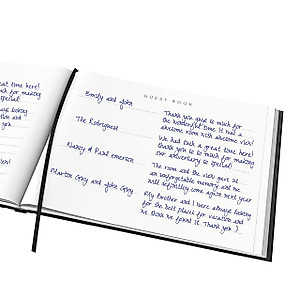 GUEST BOOK
Emily and John
Thank you so much for
the wonderful time. It was a
awesome room with awesome view!
The Rodriguez
We had such a great time here!
thank you so much for making
our adversary so special!
Nancy & Paul emerson
The room and the view gave us
an unforgetable memory and we
will definitley come again next year
Martin Gray and John Gray
My Brother and I were always looking
for the best place for vacation and
we think we found it. Thank you :)
time here!
for making
special!